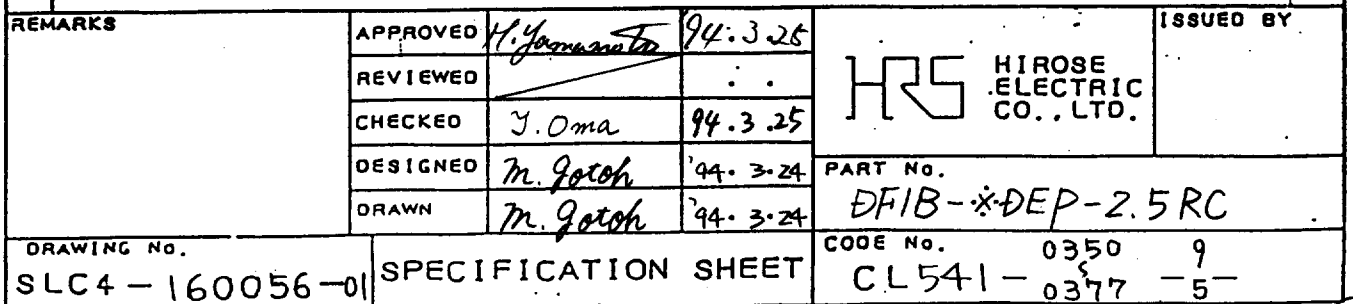 REMARKS
APPROVED H. Yamamoto 94.3.25
REVIEWED . .
CHECKED J. Oma 94.3.25
DESIGNED M. Gotoh '94. 3.24
DRAWN M. Gotoh '94. 3.24
HRS
HIROSE
ELECTRIC
CO., LTD.
ISSUED BY
PART No.
DF1B-※DEP-2.5RC
DRAWING No.
SLC4-160056-01
SPECIFICATION SHEET
CODE No.
CL541- 0350 ~ 0377 - 9 5 -